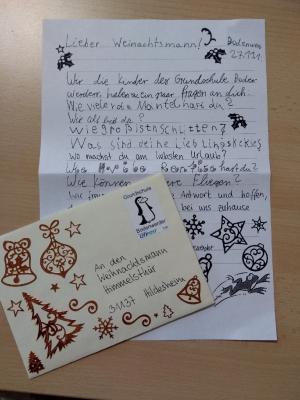 Lieber Weinachtsmann!
Bodenwer
27.11.
Wir die Kinder der Grundschule Boden
werder, haben ein paar fragen an dich.
Wie viele rote Mäntel hast du?
Wie alt bist du?
Wie groß ist dein Schlitten?
Was sind deine Lieblingskekse
Wo machst du am liebsten Urlaub?
hast du?
Wie können Fliegen?
Antwort und hoffen,
bei uns zuhause
Grundschule
Bodenwerder
An den
Weihnachtsmann
Himmelsthür
31137 Hildesheim